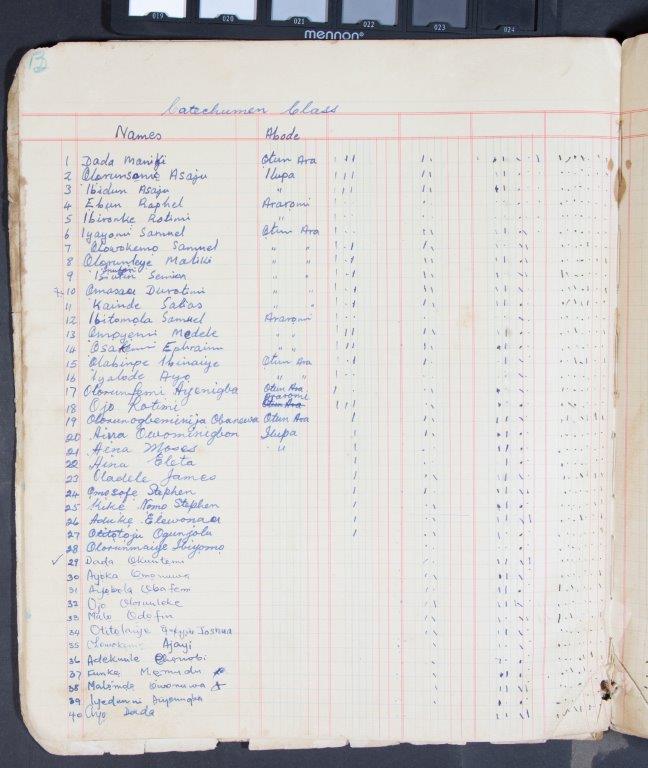 019 020 021 022 023 024
mennon®
13
Catechumen Class
Names Abode
1 Dada Mariki Otun Ara
2 Olorunsomo Asaju Ilupa
3 Ibidun Asaju "
4 Ebun Raphel Araromi
5 Ibironke Rotimi "
6 Iyayomi Samuel Otun Ara
7 Oluwokemo Samuel " "
8 Olorunleye Maliki " "
9 Semion " "
10 Omasaa Durotimi " "
11 Kainde Salias " "
12 Ibitomola Samuel Araromi
13 Omoyemi Medele "
14 Osakemi Ephraim "
15 Olabinpe Ibinaiye Otun Ara
16 Iyalode Ayo " "
17 Olorunfemi Ayenigba Otun Ara
18 Ojo Rotimi Araromi Otun Ara
19 Olorunogbeminija Obanewa Otun Ara
20 Aina Owominigbon Ilupa
21 Aena Moses "
22 Aina Eleta
23 Oladele James
24 Omosofe Stephen
25 Kike Nomo Stephen
26 Aduke Elewonaa
27 Otitoloju Ogunjolu
28 Olorunmaiye Ibiyomo
29 Dada Okunlemi
30 Ayoka Omonuwa
31 Ayobola Obafem
32 Ojo Olorunleke
33 Malo Odofin
34 Otitolaiye Joshua
35 Ajayi
36 Adekunle
37 Funke Memudu
38 Malomde Owonuwa
39 Iyedunni Aiyenigba
40 Ayo Dada